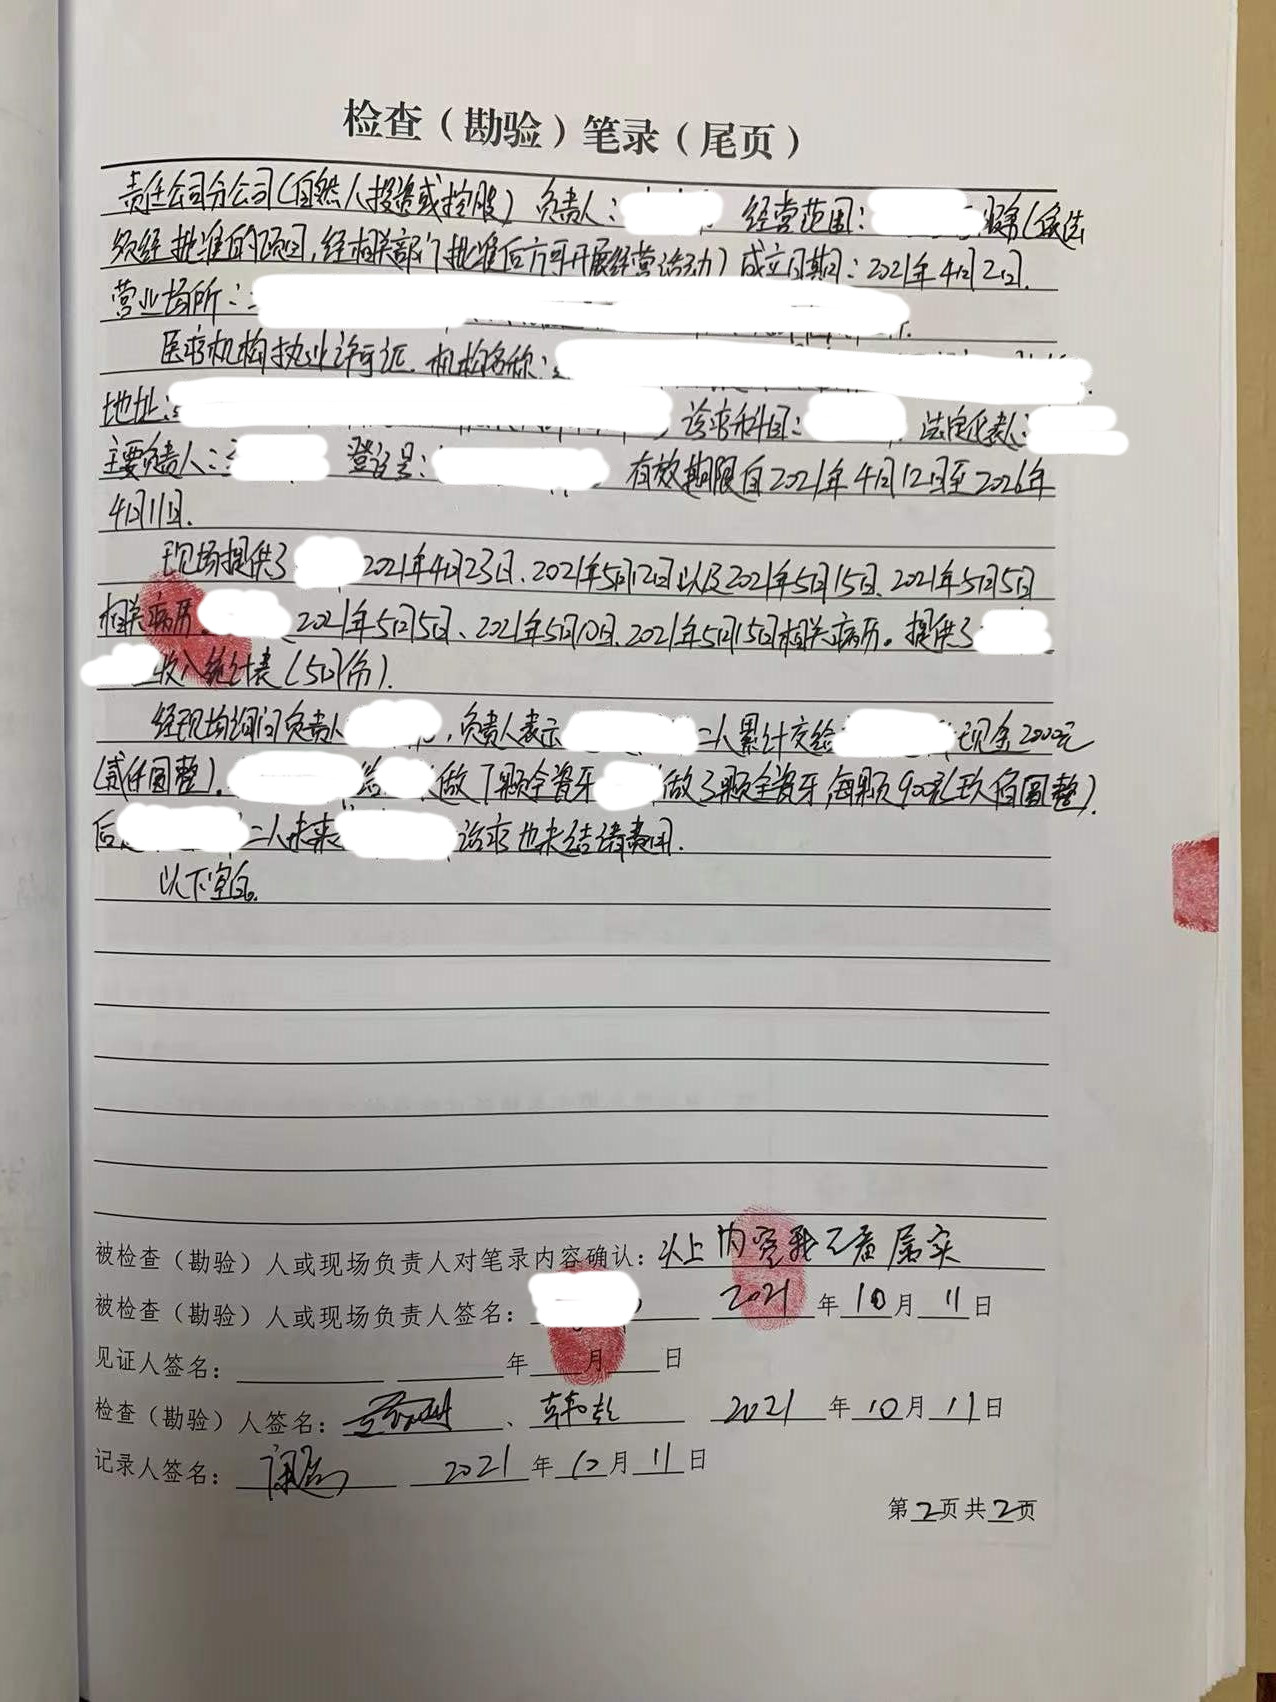 检查（勘验）笔录（尾页）
责任公司分公司（自然人投资或控股） 负责人： 经营范围： （依法
须经批准的项目，经相关部门批准后方可开展经营活动） 成立日期：2021年4月2日.
营业场所：
医疗机构执业许可证. 机构名称：
地址： 诊疗科目： 法定代表人：
主要负责人： 登记号： 有效期限自2021年4月12日至2026年
4月11日.
现场提供了 2021年4月23日、2021年5月2日以及2021年5月15日、2021年5月5日
相关病历. 2021年5月5日、2021年5月10日、2021年5月15日相关病历。提供了
收入统计表（5月份）.
经现场询问负责人 ，负责人表示 二人累计交给 现金2000元
（贰仟圆整）. 给 做 颗全瓷牙 做3颗全瓷牙，每颗900元（玖佰圆整）.
后 二人未来 治疗也未结清费用.
以下空白。
被检查（勘验）人或现场负责人对笔录内容确认：以上内容我已看 属实
被检查（勘验）人或现场负责人签名： 2021年10月11日
见证人签名： 年 月 日
检查（勘验）人签名： 、 2021年10月11日
记录人签名： 2021年10月11日
第2页共2页